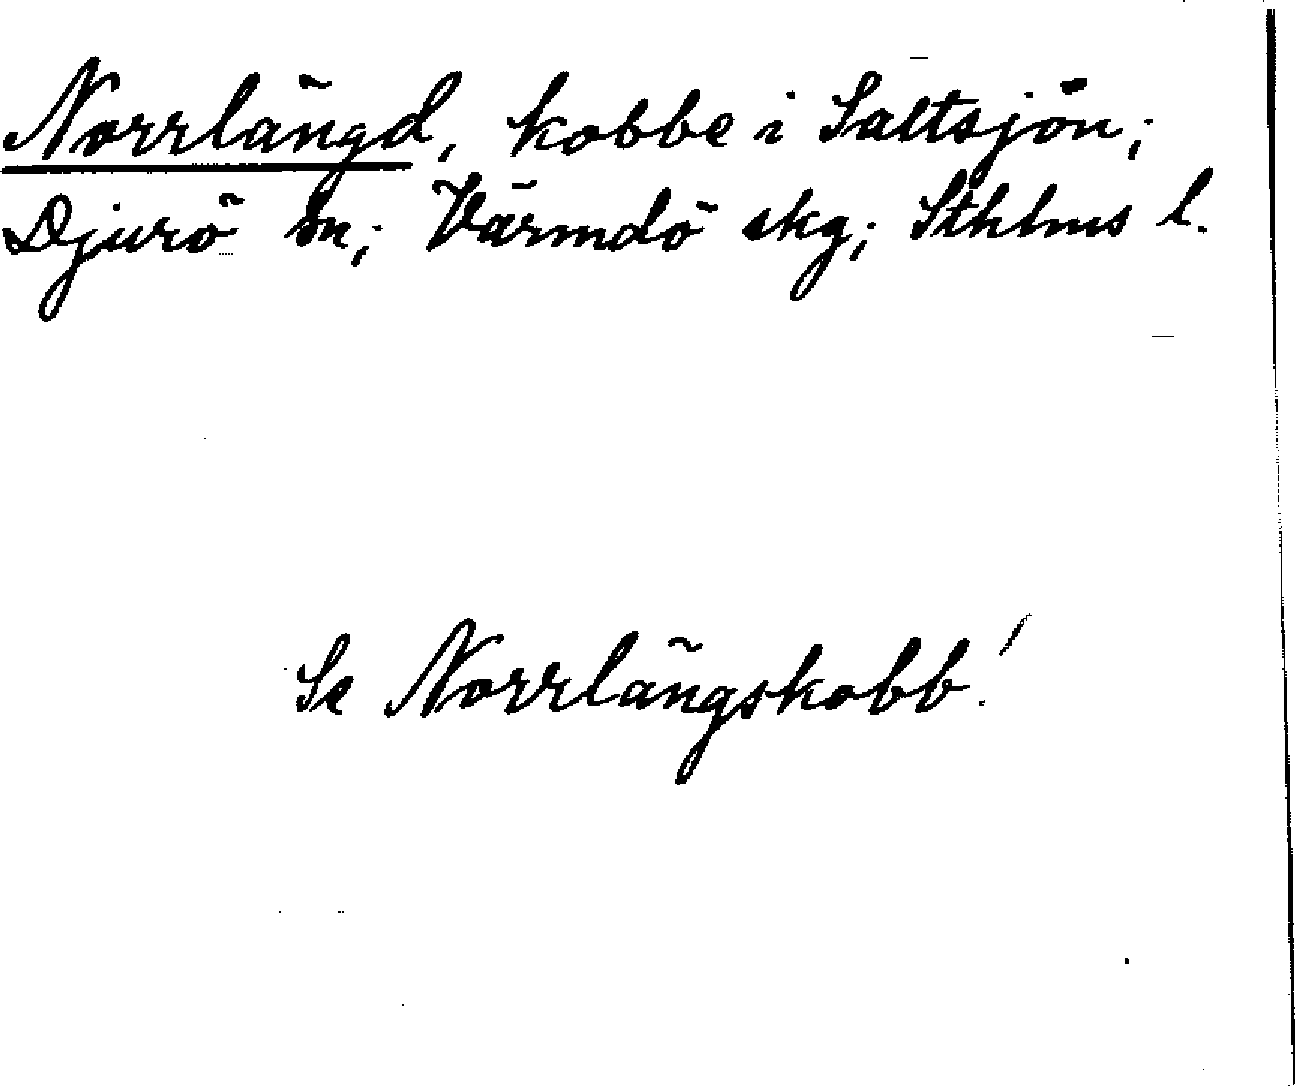 Norrlängd, kobbe i Saltsjön;
Djurö sn; Värmdö skg; Sthlms l.
Se Norrlängskobb!